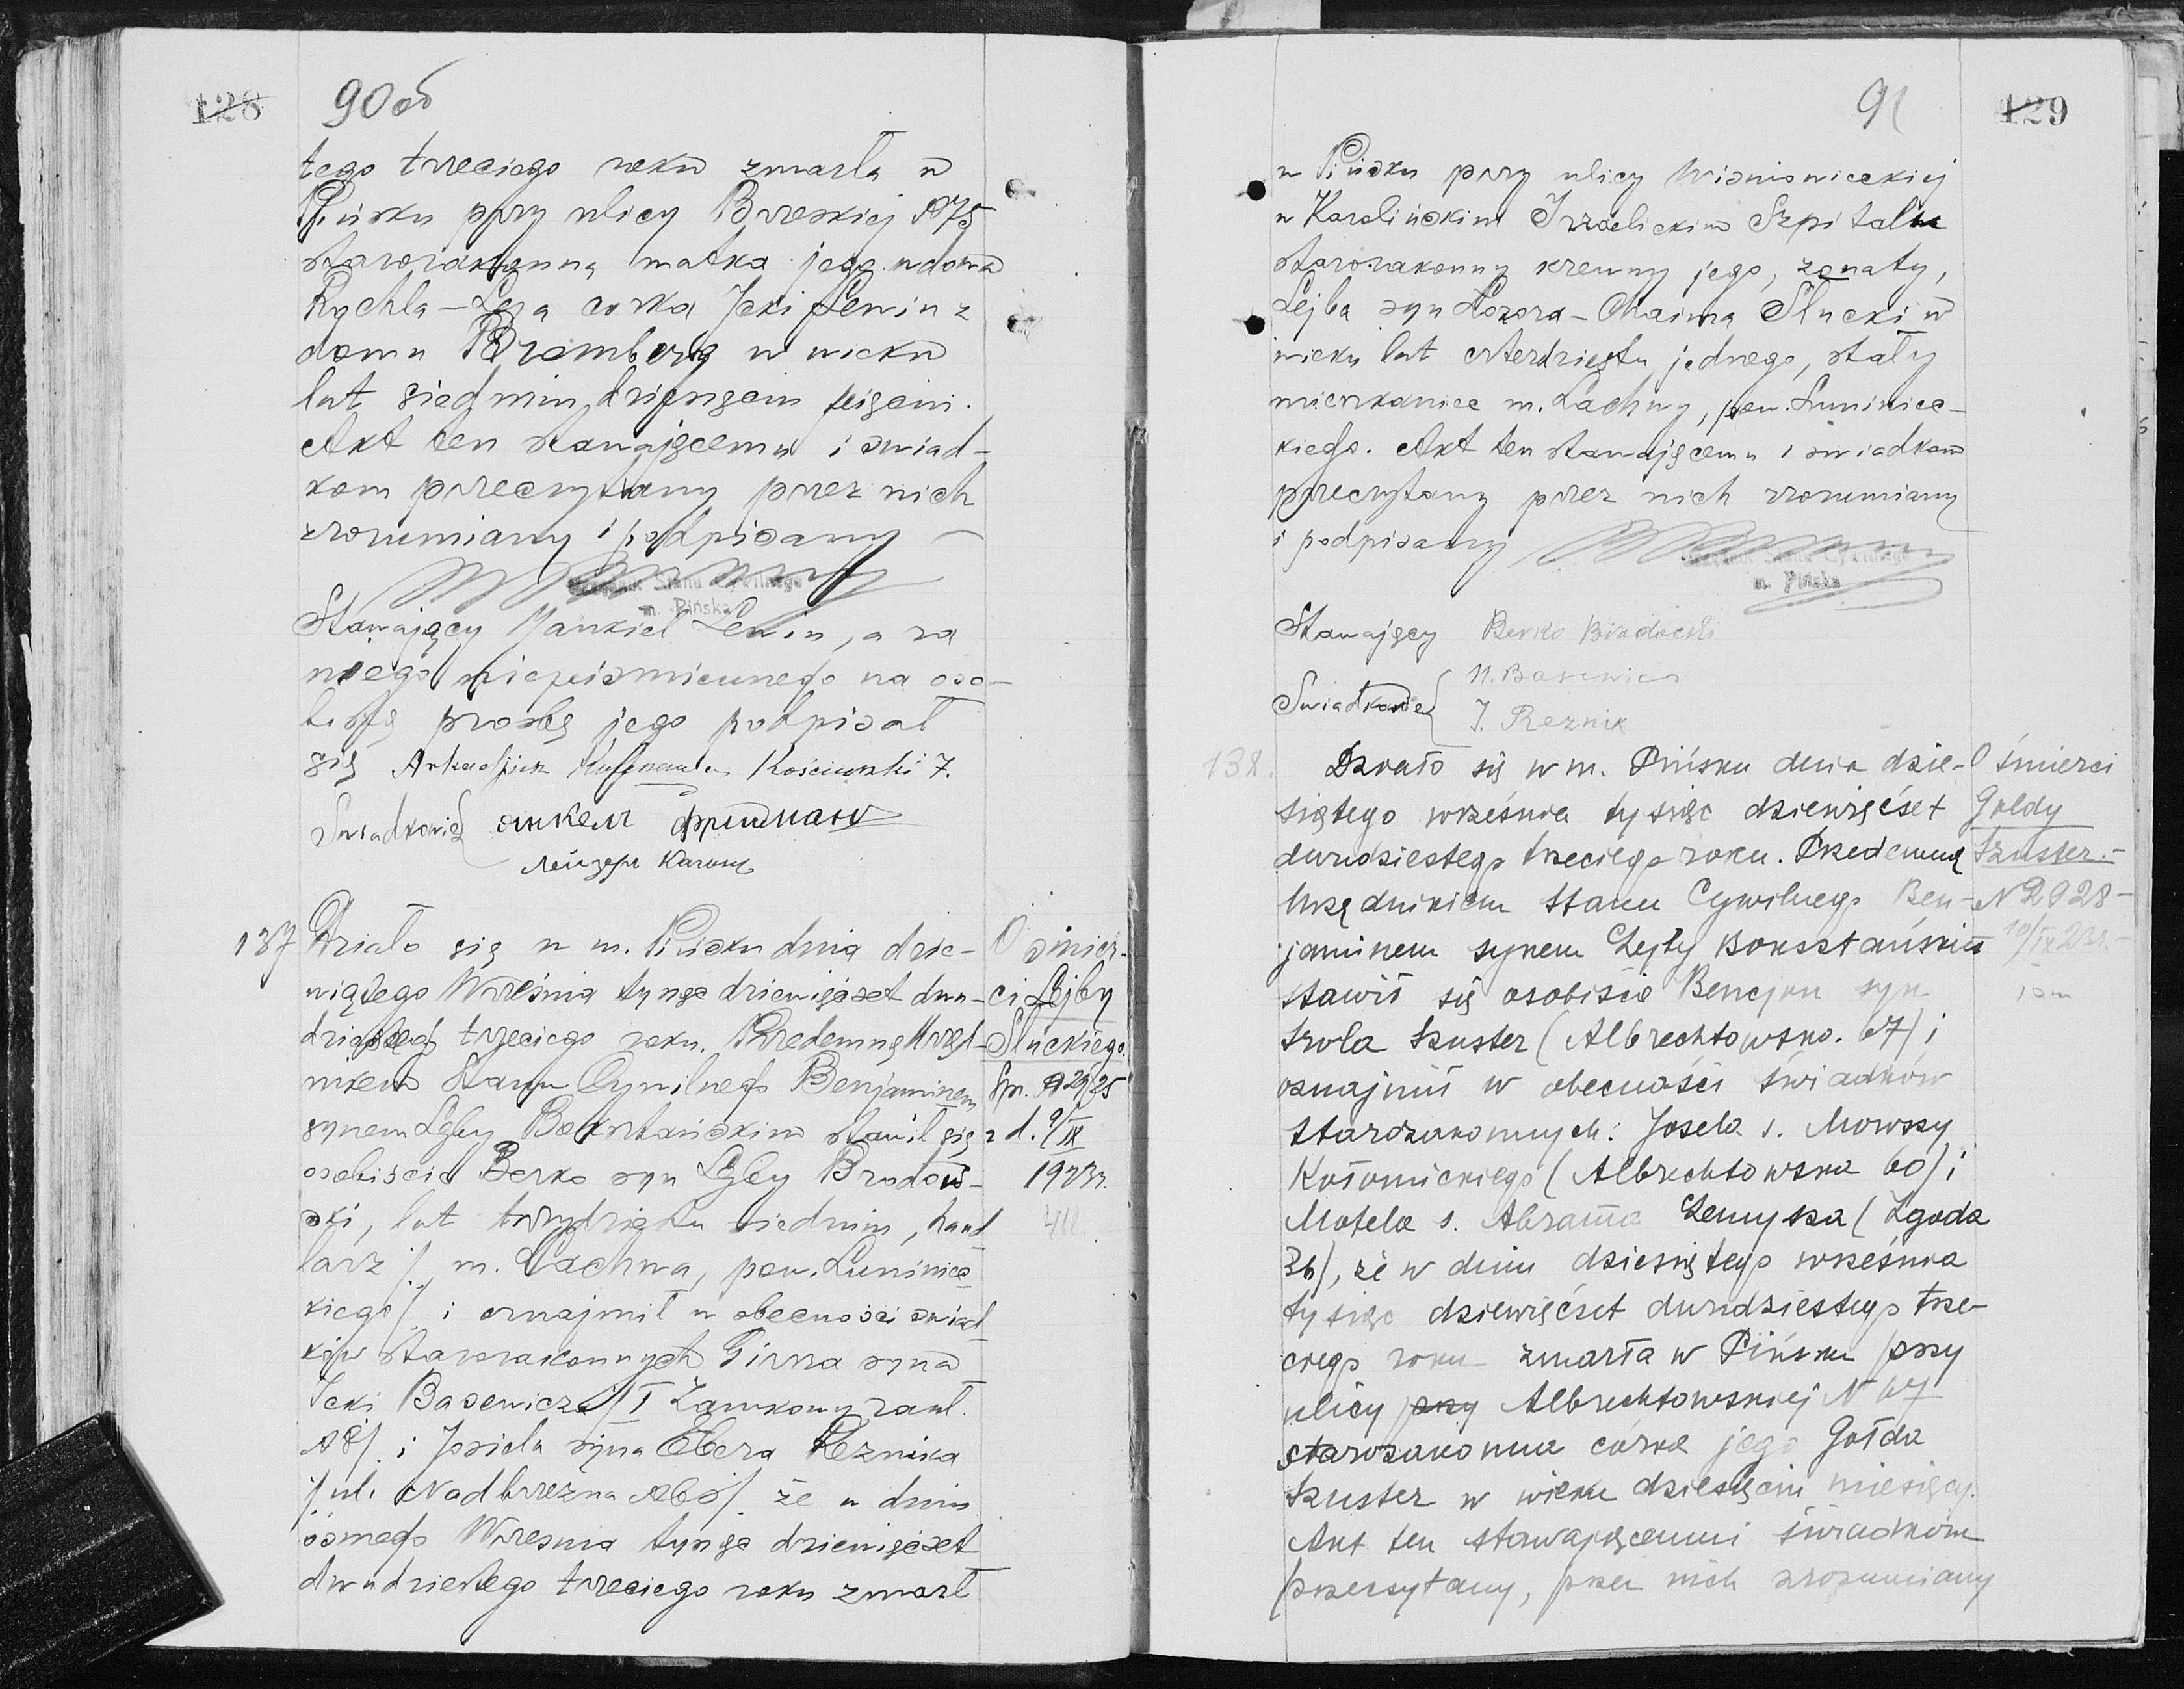 128 90 об
tego trzeciego roku zmarła w
Pińsku przy ulicy Brzeskiej №75
starozakonna matka jego wdowa
Rychla - córka Icki Lewin z
domu Bromberg w wieku
lat siedmindziesięciu sześciu.
Akt ten stawającemu i świad-
kom przeczytany przez nich
zrozumiany i podpisany —
Urzędnik Stanu Cywilnego
m. Pińska
Stawający Jankiel Lewin, a za
niego niepiśmiennego na oso-
bistą prośbę jego podpisał
się Arkadjusz Kościuszki 7.
Świadkowie Янкель Фридман
Лейзеръ
137 Działo się w m. Pińsku dnia dzie-
wiątego Września tysiąc dziewięćset dwu-
dziestego trzeciego roku. Przedemną Urzęd-
nikiem Stanu Cywilnego Benjaminem
synem Lejby Bokształskim stawił się
osobiście Berko syn Lejby Brodow-
ski, lat trzydziestu siedmiu, hand
larz /. m. Lachwa, pow. Łuniniec
kiego /. i oznajmił w obecności świad
ków starozakonnych Girsza syna
Icki Basewicza /. I Zamkowy zauł.
№ 8/. i Josiela syna Elera Reznika
/. ul. Nadbrzeżna № 60/. że w dniu
ósmego Wrzesnia tysiąc dziewięćset
dwudziestego trzeciego roku zmarł
O śmier-
ci Lejby
Słuckiego.
Spr. № 2925
z d. 9/IX
1923 r.
91 129
w Pińsku przy ulicy Wiśniowieckiej
w Karolińskim Izraelickim Szpitalu
starozakonny krewny jego, żonaty,
Lejba syn Łozora-Chaima Słucki w
wieku lat czterdziestu jednego, stały
mieszkaniec m. Lachwy, pow. Łuniniec-
kiego. Akt ten stawającemu i świadkom
przeczytany przez nich zrozumiany
i podpisany
Urzędnik Stanu Cywilnego
m. Pińska
Stawający Berko
Świadkowie N. Basewicz
J. Reznik
138. Działo się w m. Pińsku dnia dzie-
siątego września tysiąc dziewięćset
dwudziestego trzeciego roku. Przedemną
Urzędnikiem Stanu Cywilnego Ben-
jaminem synem Lejby Bokształskim
stawił się osobiście Bencjon syn
Srola Szuster (Albrechtowska. 67) i
oznajmił w obecności świadków
starozakonnych: Josela s. Mowszy
Kołomickiego (Albrechtowska 60) i
Motela s. Abrama (Zgoda
36), że w dniu dziesiątego września
tysiąc dziewięćset dwudziestego trze-
ciego roku zmarła w Pińsku przy
ulicy przy Albrechtowskiej N 67
starozakonna córka jego Gołda
Szuster w wieku dziesięciu miesięcy.
Akt ten stawającemu i świadkom
przeczytany, przez nich zrozumiany
O śmierci
Gołdy
Szuster.-
N 2928-
10/IX 23 r.-